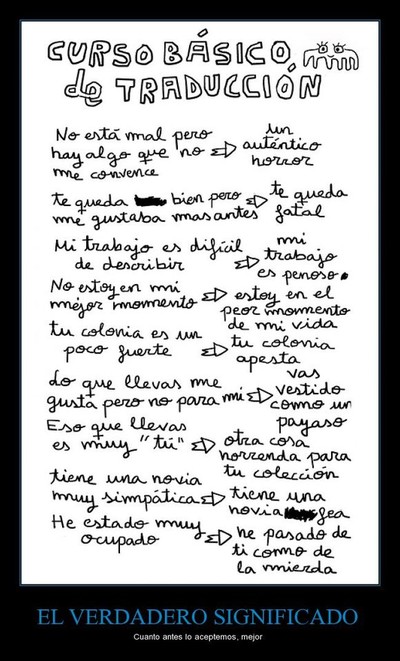 CURSO BÁSICO
de TRADUCCIÓN
No está mal pero
hay algo que no
me convence
un
auténtico
horror
te queda bien pero
me gustaba mas antes
te queda
fatal
Mi trabajo es difícil
de describir
mi
trabajo
es penoso.
No estoy en mi
mejor momento
estoy en el
peor momento
de mi vida
tu colonia es un
poco fuerte
tu colonia
apesta
Lo que llevas me
gusta pero no para mí
vas
vestido
como un
payaso
Eso que llevas
es muy "tú"
otra cosa
horrenda para
tu colección
tiene una novia
muy simpática
tiene una
novia fea
He estado muy
ocupado
he pasado de
ti como de
la mierda
EL VERDADERO SIGNIFICADO
Cuanto antes lo aceptemos, mejor